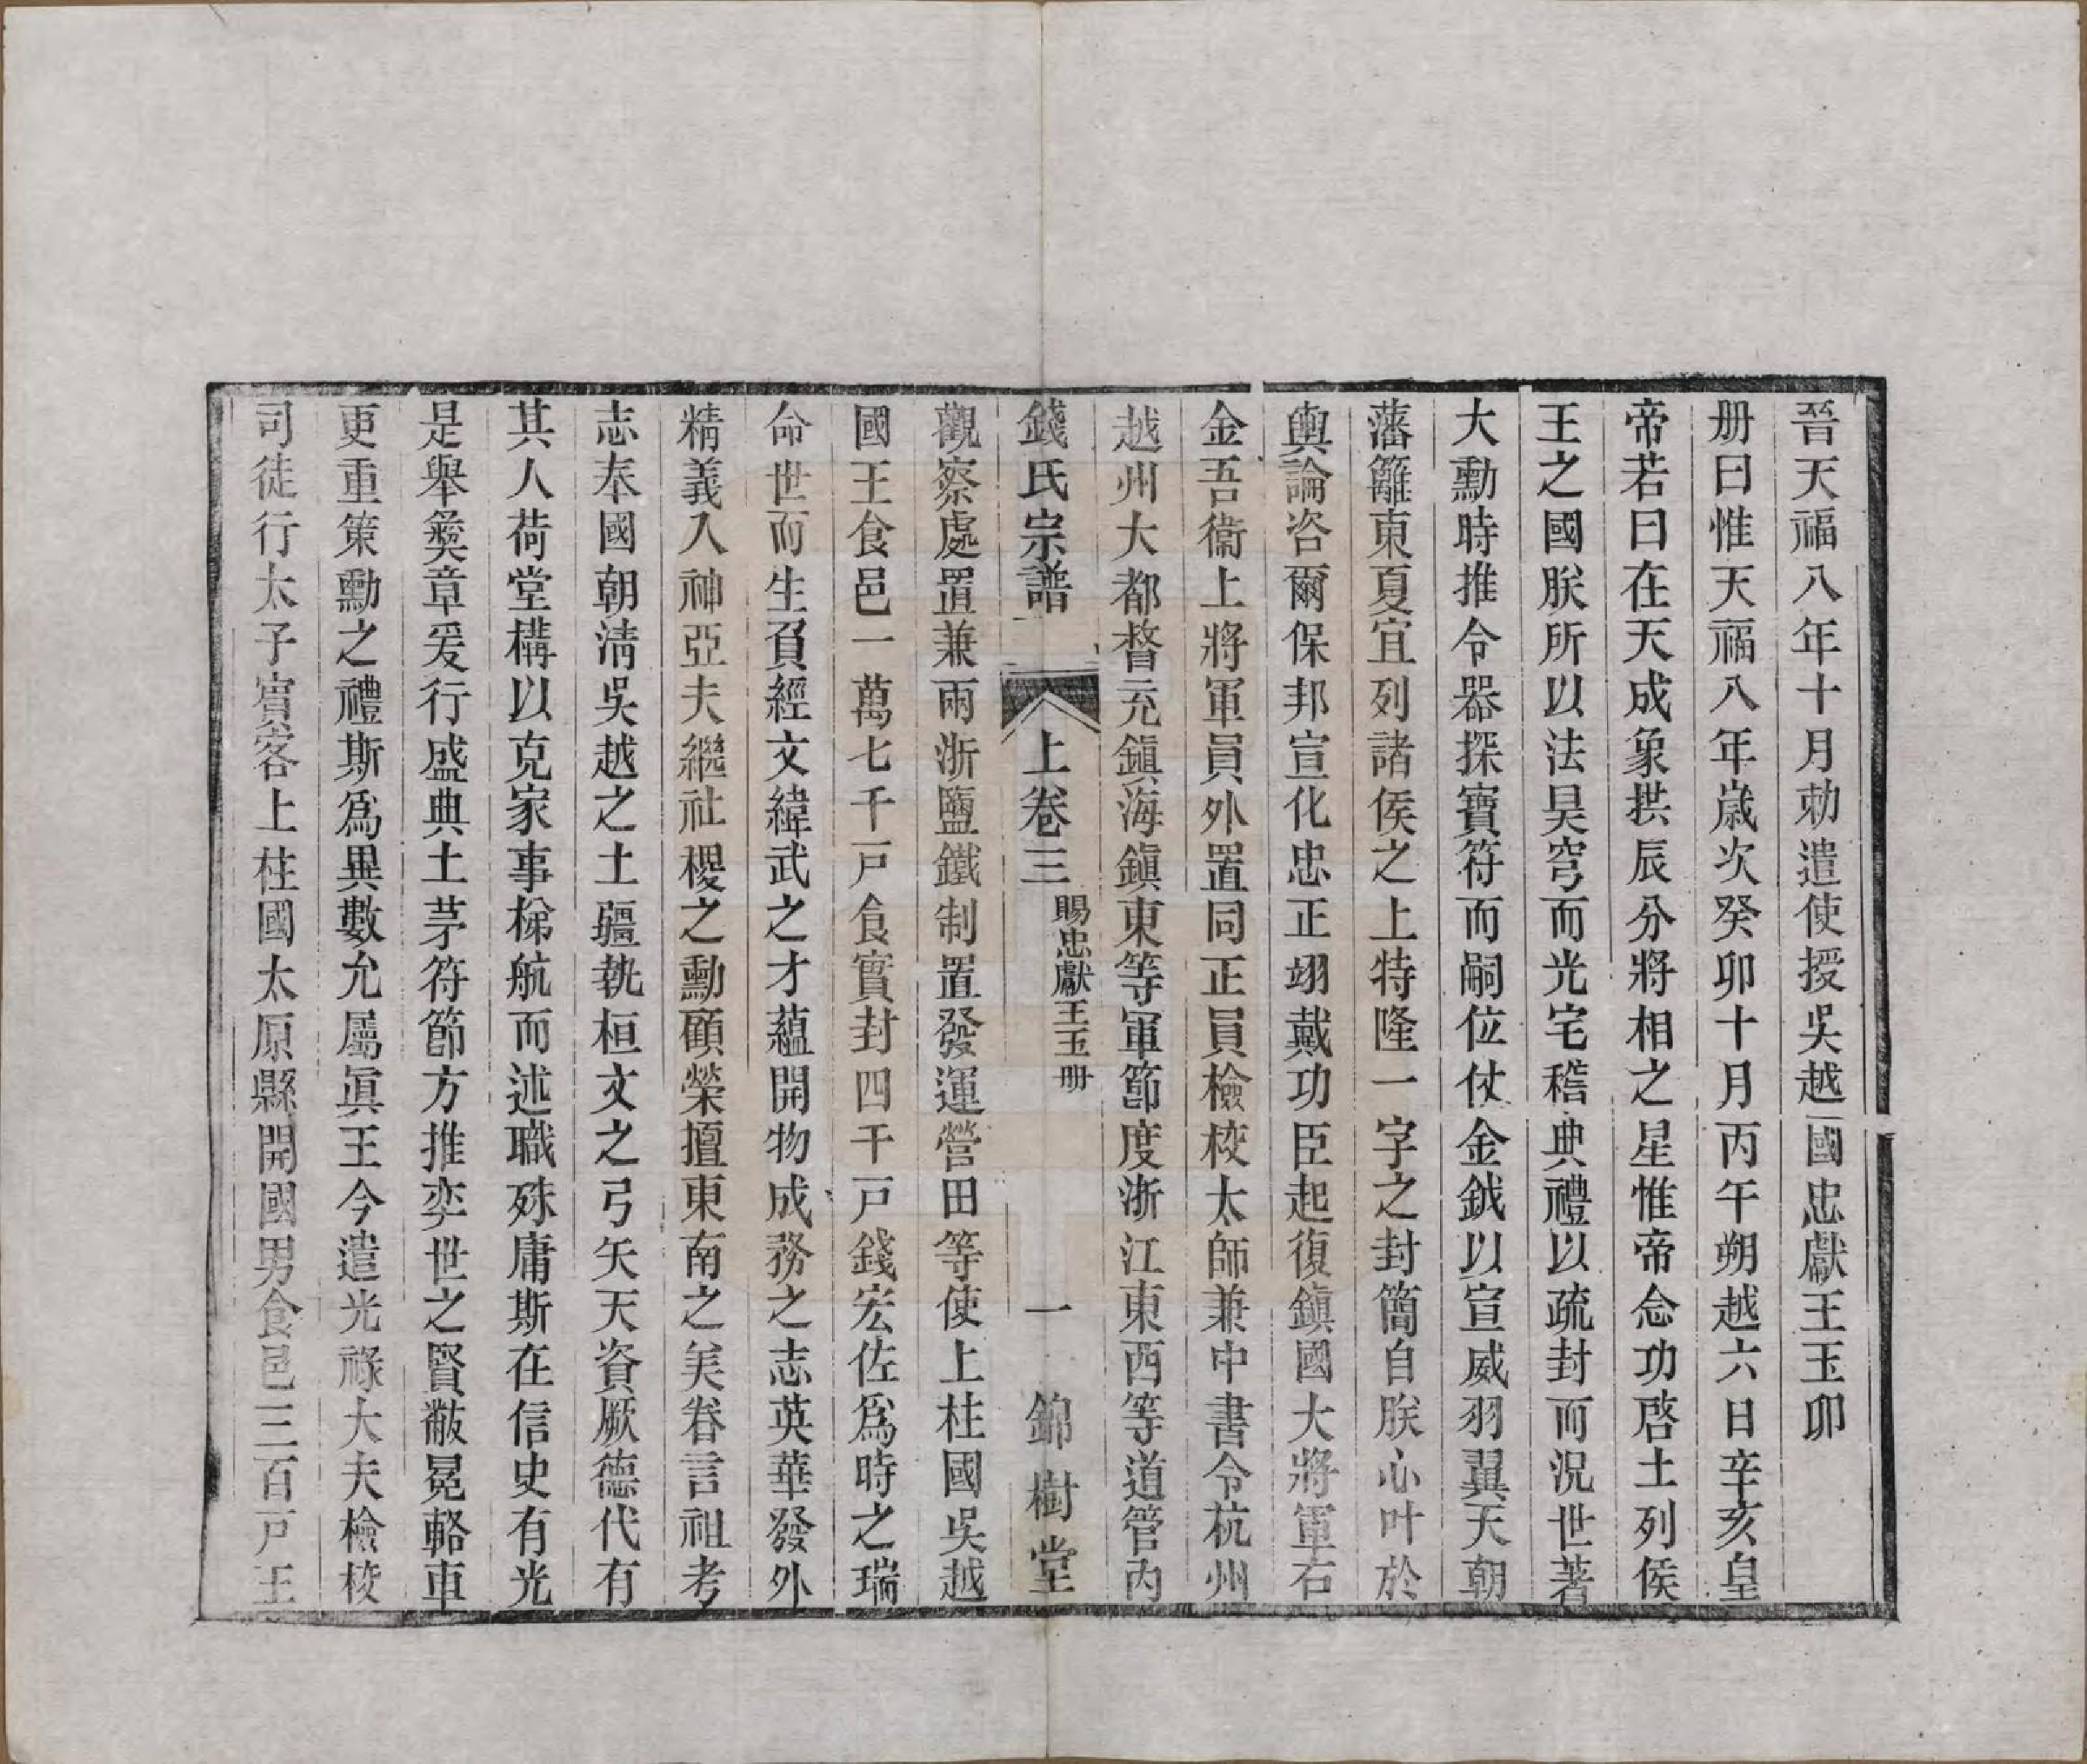 晉天福八年十月勅遣使授吳越國忠獻王玉卯
册曰惟天福八年歲次癸卯十月丙午朔越六日辛亥皇
帝若曰在天成象拱辰分將相之星惟帝念功啓土列侯
王之國朕所以法昊穹而光宅稽典禮以疏封而況世著
大勳時推令器探寶符而嗣位仗金鉞以宣威羽翼天朝
藩籬東夏宜列諸侯之上特隆一字之封簡自朕心叶於
輿論咨爾保邦宣化忠正翊戴功臣起復鎮國大將軍右
金吾衞上將軍員外置同正員檢校太師兼中書令杭州
越州大都督充鎮海鎮東等軍節度浙江東西等道管內
錢氏宗譜 上卷三 賜忠獻王玉册 一 錦樹堂
觀察處置兼兩浙鹽鐵制置發運營田等使上柱國吳越
國王食邑一萬七千戶食實封四千戶錢宏佐爲時之瑞
命世而生負經文緯武之才蘊開物成務之志英華發外
精義入神亞夫繼社稷之勳顧榮擅東南之美眷言祖考
志奉國朝淸吳越之土疆執桓文之弓矢天資厥德代有
其人荷堂構以克家事梯航而述職殊庸斯在信史有光
是舉彝章爰行盛典土茅符節方推奕世之賢黻冕輅車
更重策勳之禮斯爲異數允屬眞王今遣光祿大夫檢校
司徒行太子賓客上柱國太原縣開國男食邑三百戶王